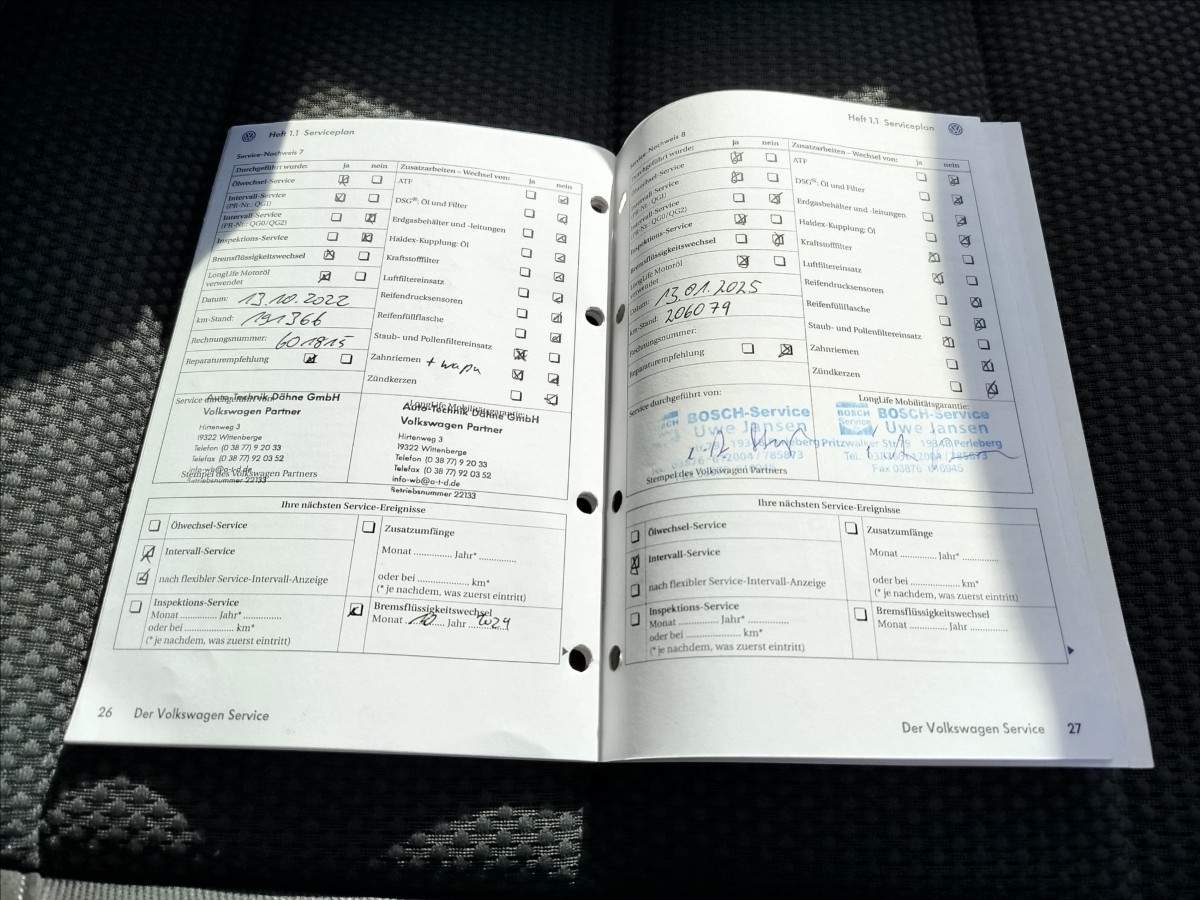 Heft 1.1 Serviceplan
Service-Nachweis 7
Durchgeführt wurde: ja nein
Ölwechsel-Service
Intervall-Service
(PR-Nr.: QG1)
Intervall-Service
(PR-Nr.: QG0/QG2)
Inspektions-Service
Bremsflüssigkeitswechsel
LongLife Motoröl
verwendet
Datum: 13.10.2022
km-Stand: 191366
Rechnungsnummer: 601815
Reparaturempfehlung
Zusatzarbeiten – Wechsel von: ja nein
ATF
DSG®: Öl und Filter
Erdgasbehälter und -leitungen
Haldex-Kupplung: Öl
Kraftstofffilter
Luftfiltereinsatz
Reifendrucksensoren
Reifenfüllflasche
Staub- und Pollenfiltereinsatz
Zahnriemen + wapu
Zündkerzen
Service durchgeführt von:
Auto-Technik Dähne GmbH
Volkswagen Partner
Hirtenweg 3
19322 Wittenberge
Telefon (0 38 77) 9 20 33
Telefax (0 38 77) 92 03 52
info-wb@a-t-d.de
Betriebsnummer 22133
Stempel des Volkswagen Partners
LongLife Mobilitätsgarantie:
Auto-Technik Dähne GmbH
Volkswagen Partner
Hirtenweg 3
19322 Wittenberge
Telefon (0 38 77) 9 20 33
Telefax (0 38 77) 92 03 52
info-wb@a-t-d.de
Betriebsnummer 22133
Ihre nächsten Service-Ereignisse
Ölwechsel-Service
Intervall-Service
nach flexibler Service-Intervall-Anzeige
Inspektions-Service
Monat ............. Jahr* .............
oder bei ............. km*
(* je nachdem, was zuerst eintritt)
Zusatzumfänge
Monat ............. Jahr* .............
oder bei ............. km*
(* je nachdem, was zuerst eintritt)
Bremsflüssigkeitswechsel
Monat 10 Jahr 2024
26 Der Volkswagen Service
Heft 1.1 Serviceplan
Service-Nachweis 8
Durchgeführt wurde: ja nein
Ölwechsel-Service
Intervall-Service
(PR-Nr.: QG1)
Intervall-Service
(PR-Nr.: QG0/QG2)
Inspektions-Service
Bremsflüssigkeitswechsel
LongLife Motoröl
verwendet
Datum: 13.01.2025
km-Stand: 206079
Rechnungsnummer:
Reparaturempfehlung
Zusatzarbeiten – Wechsel von: ja nein
ATF
DSG®: Öl und Filter
Erdgasbehälter und -leitungen
Haldex-Kupplung: Öl
Kraftstofffilter
Luftfiltereinsatz
Reifendrucksensoren
Reifenfüllflasche
Staub- und Pollenfiltereinsatz
Zahnriemen
Zündkerzen
Service durchgeführt von:
BOSCH-Service
Uwe Jansen
Stempel des Volkswagen Partners
LongLife Mobilitätsgarantie:
BOSCH
Service
BOSCH-Service
Uwe Jansen
Pritzwalker Str. 19348 Perleberg
Ihre nächsten Service-Ereignisse
Ölwechsel-Service
Intervall-Service
nach flexibler Service-Intervall-Anzeige
Inspektions-Service
Monat ............. Jahr* .............
oder bei ............. km*
(* je nachdem, was zuerst eintritt)
Zusatzumfänge
Monat ............. Jahr* .............
oder bei ............. km*
(* je nachdem, was zuerst eintritt)
Bremsflüssigkeitswechsel
Monat ............. Jahr .............
Der Volkswagen Service 27